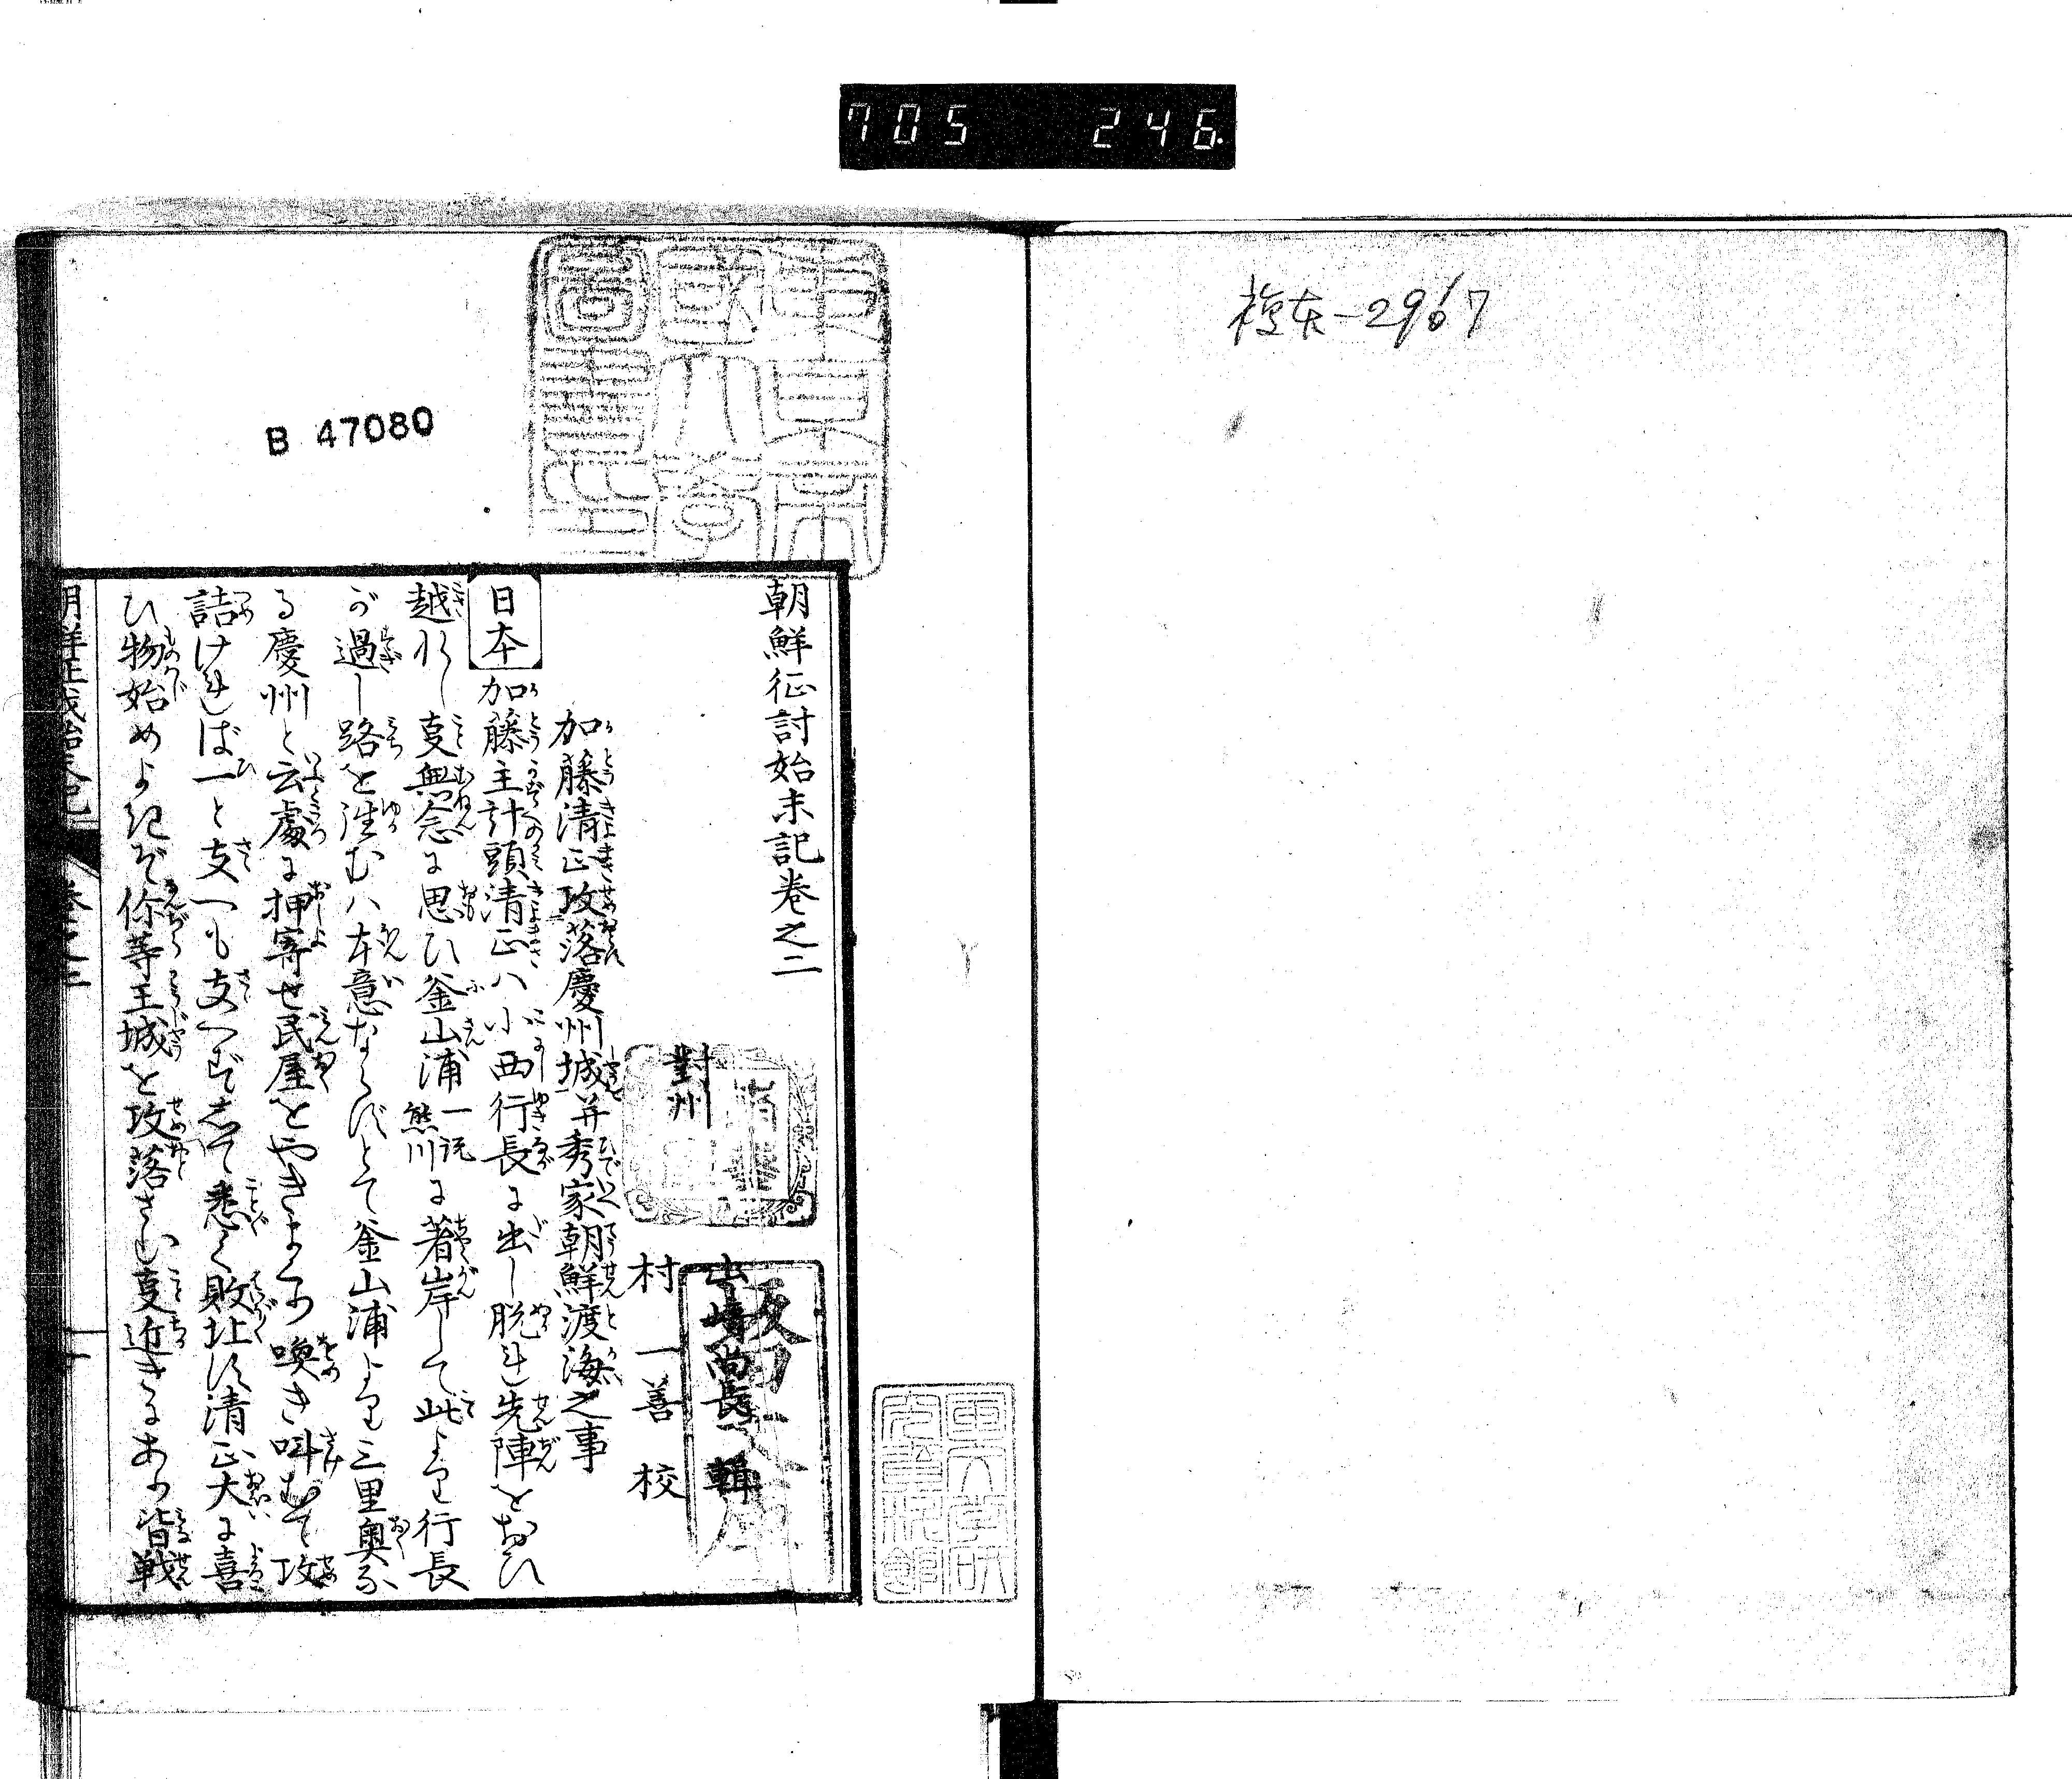 705 246
複本-2967
東京帝國大學圖書印
B 47080
朝鮮征討始末記卷之二
對州
山崎尚長 輯
村 一善 校
加藤清正攻落慶州城并秀家朝鮮渡海之事
日本 加藤主計頭清正ハ小西行長に出し脱れ先陣をおひ
越れし叓無念に思ひ釜山浦一説熊川に著岸して此より行長
が過し路を徃むハ本意ならずとて釜山浦より三里奥な
る慶州と云處に押寄せ民屋をやきまくり喚き叫むて攻
詰ければ一と支へも支へずして悉く敗北す清正大に喜
ひ物始めよきぞ你等王城を攻落さむ叓近きにあり皆戦